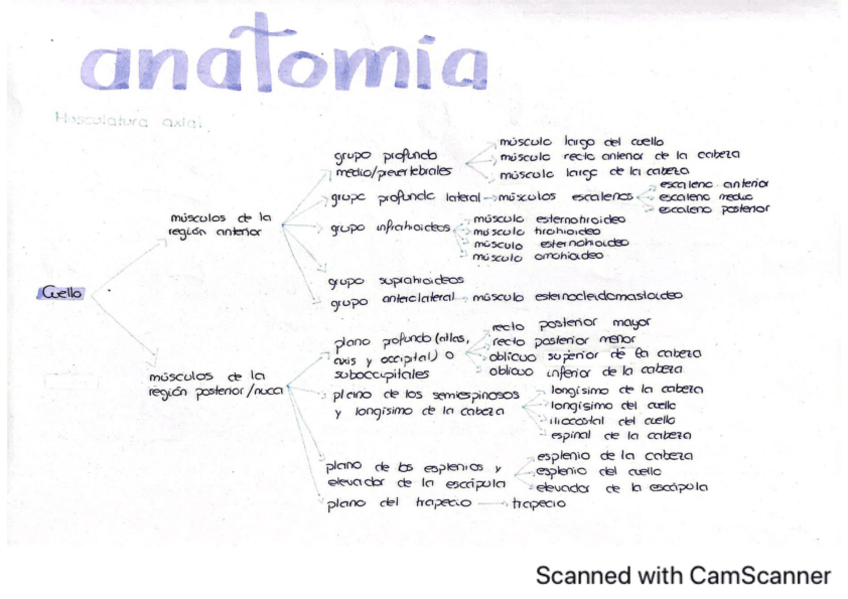 anatomia
Musculatura axial
Cuello
músculos de la
región anterior
grupo profundo
medio/prevertebrales
músculo largo del cuello
músculo recto anterior de la cabeza
músculo largo de la cabeza
grupo profundo lateral → músculos escalenos
escaleno anterior
escaleno medio
escaleno posterior
grupo infrahioideos
músculo esternotiroideo
músculo tirohioideo
músculo esternohioideo
músculo omohioideo
grupo suprahioideos
grupo anterolateral → músculo esternocleidomastoideo
músculos de la
región posterior/nuca
plano profundo (atlas,
axis y occipital) o
suboccipitales
recto posterior mayor
recto posterior menor
oblicuo superior de la cabeza
oblicuo inferior de la cabeza
plano de los semiespinosos
y longísimo de la cabeza
longísimo de la cabeza
longísimo del cuello
iliocostal del cuello
espinal de la cabeza
plano de los esplenios y
elevador de la escápula
esplenio de la cabeza
esplenio del cuello
elevador de la escápula
plano del trapecio → trapecio
Scanned with CamScanner